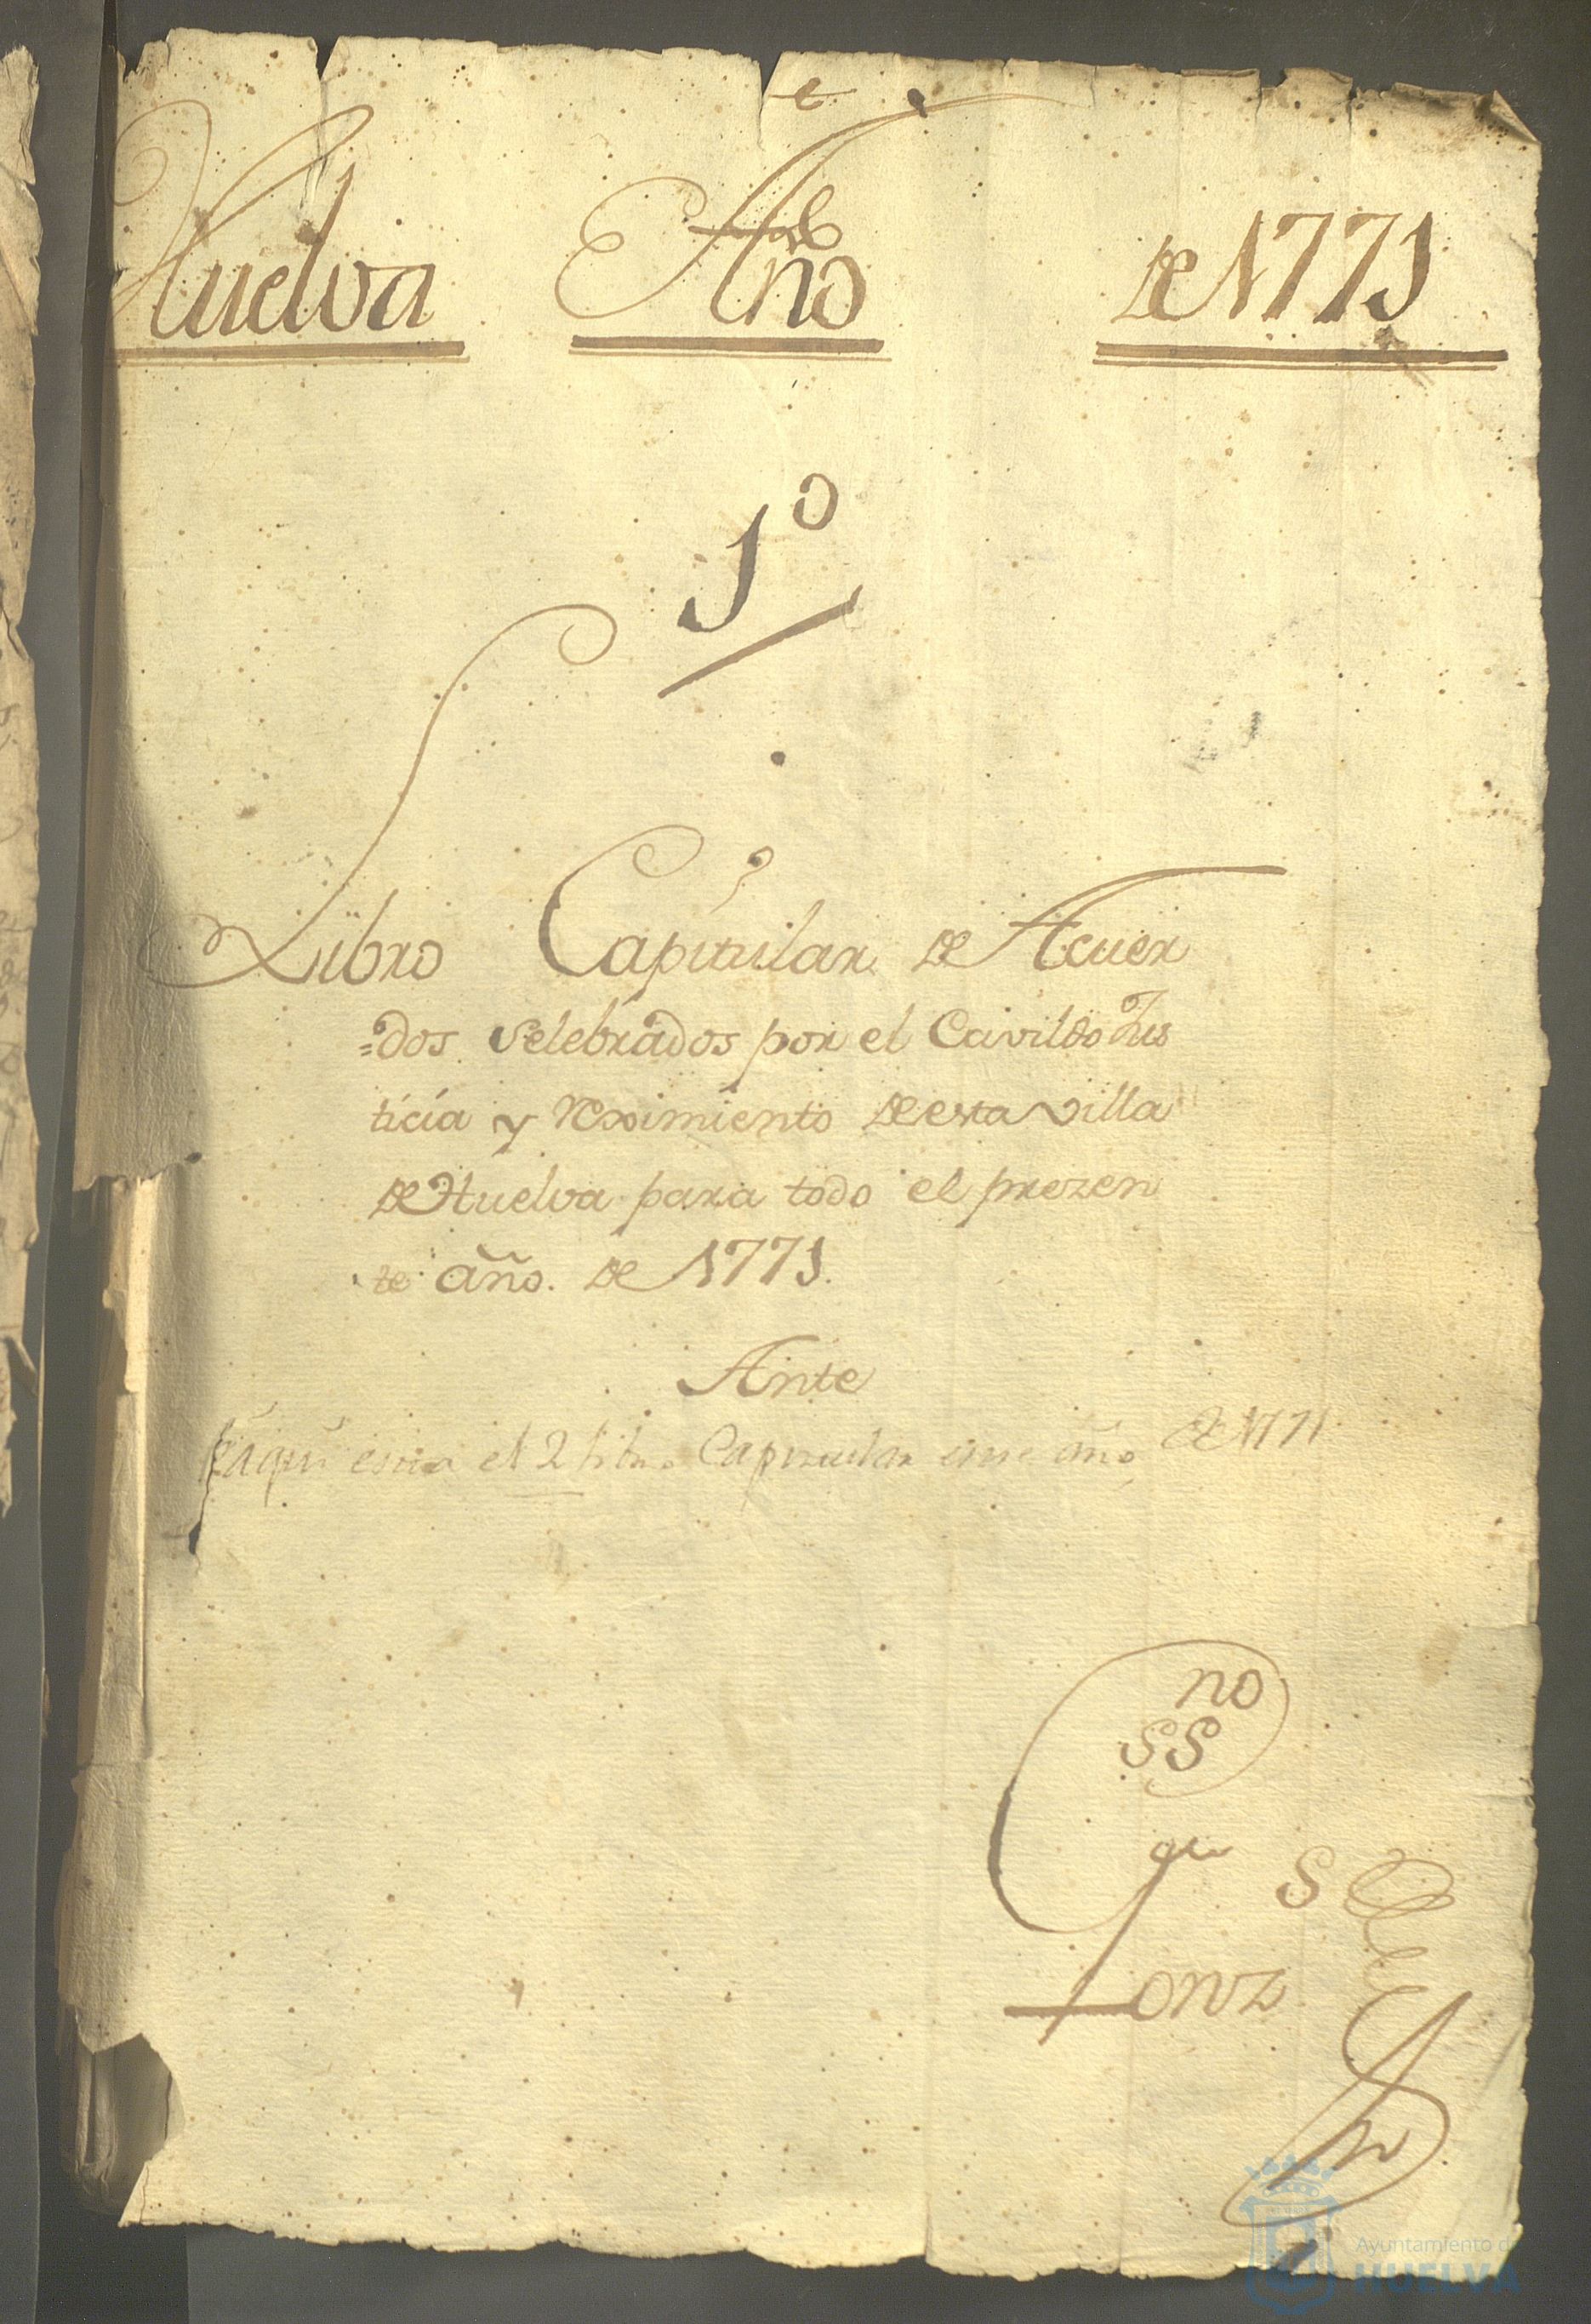 Huelva Año de 1771
1º
Libro Capitular de Acuer
=dos selebrados por el Cavildo Jus
ticia y reximiento de esta villa
de Huelva para todo el prezen
te año. de 1771.
Ante
aqui esta el 2 libro Capitular año de 1771
no
SS
S
Ayuntamiento d
HUELVA